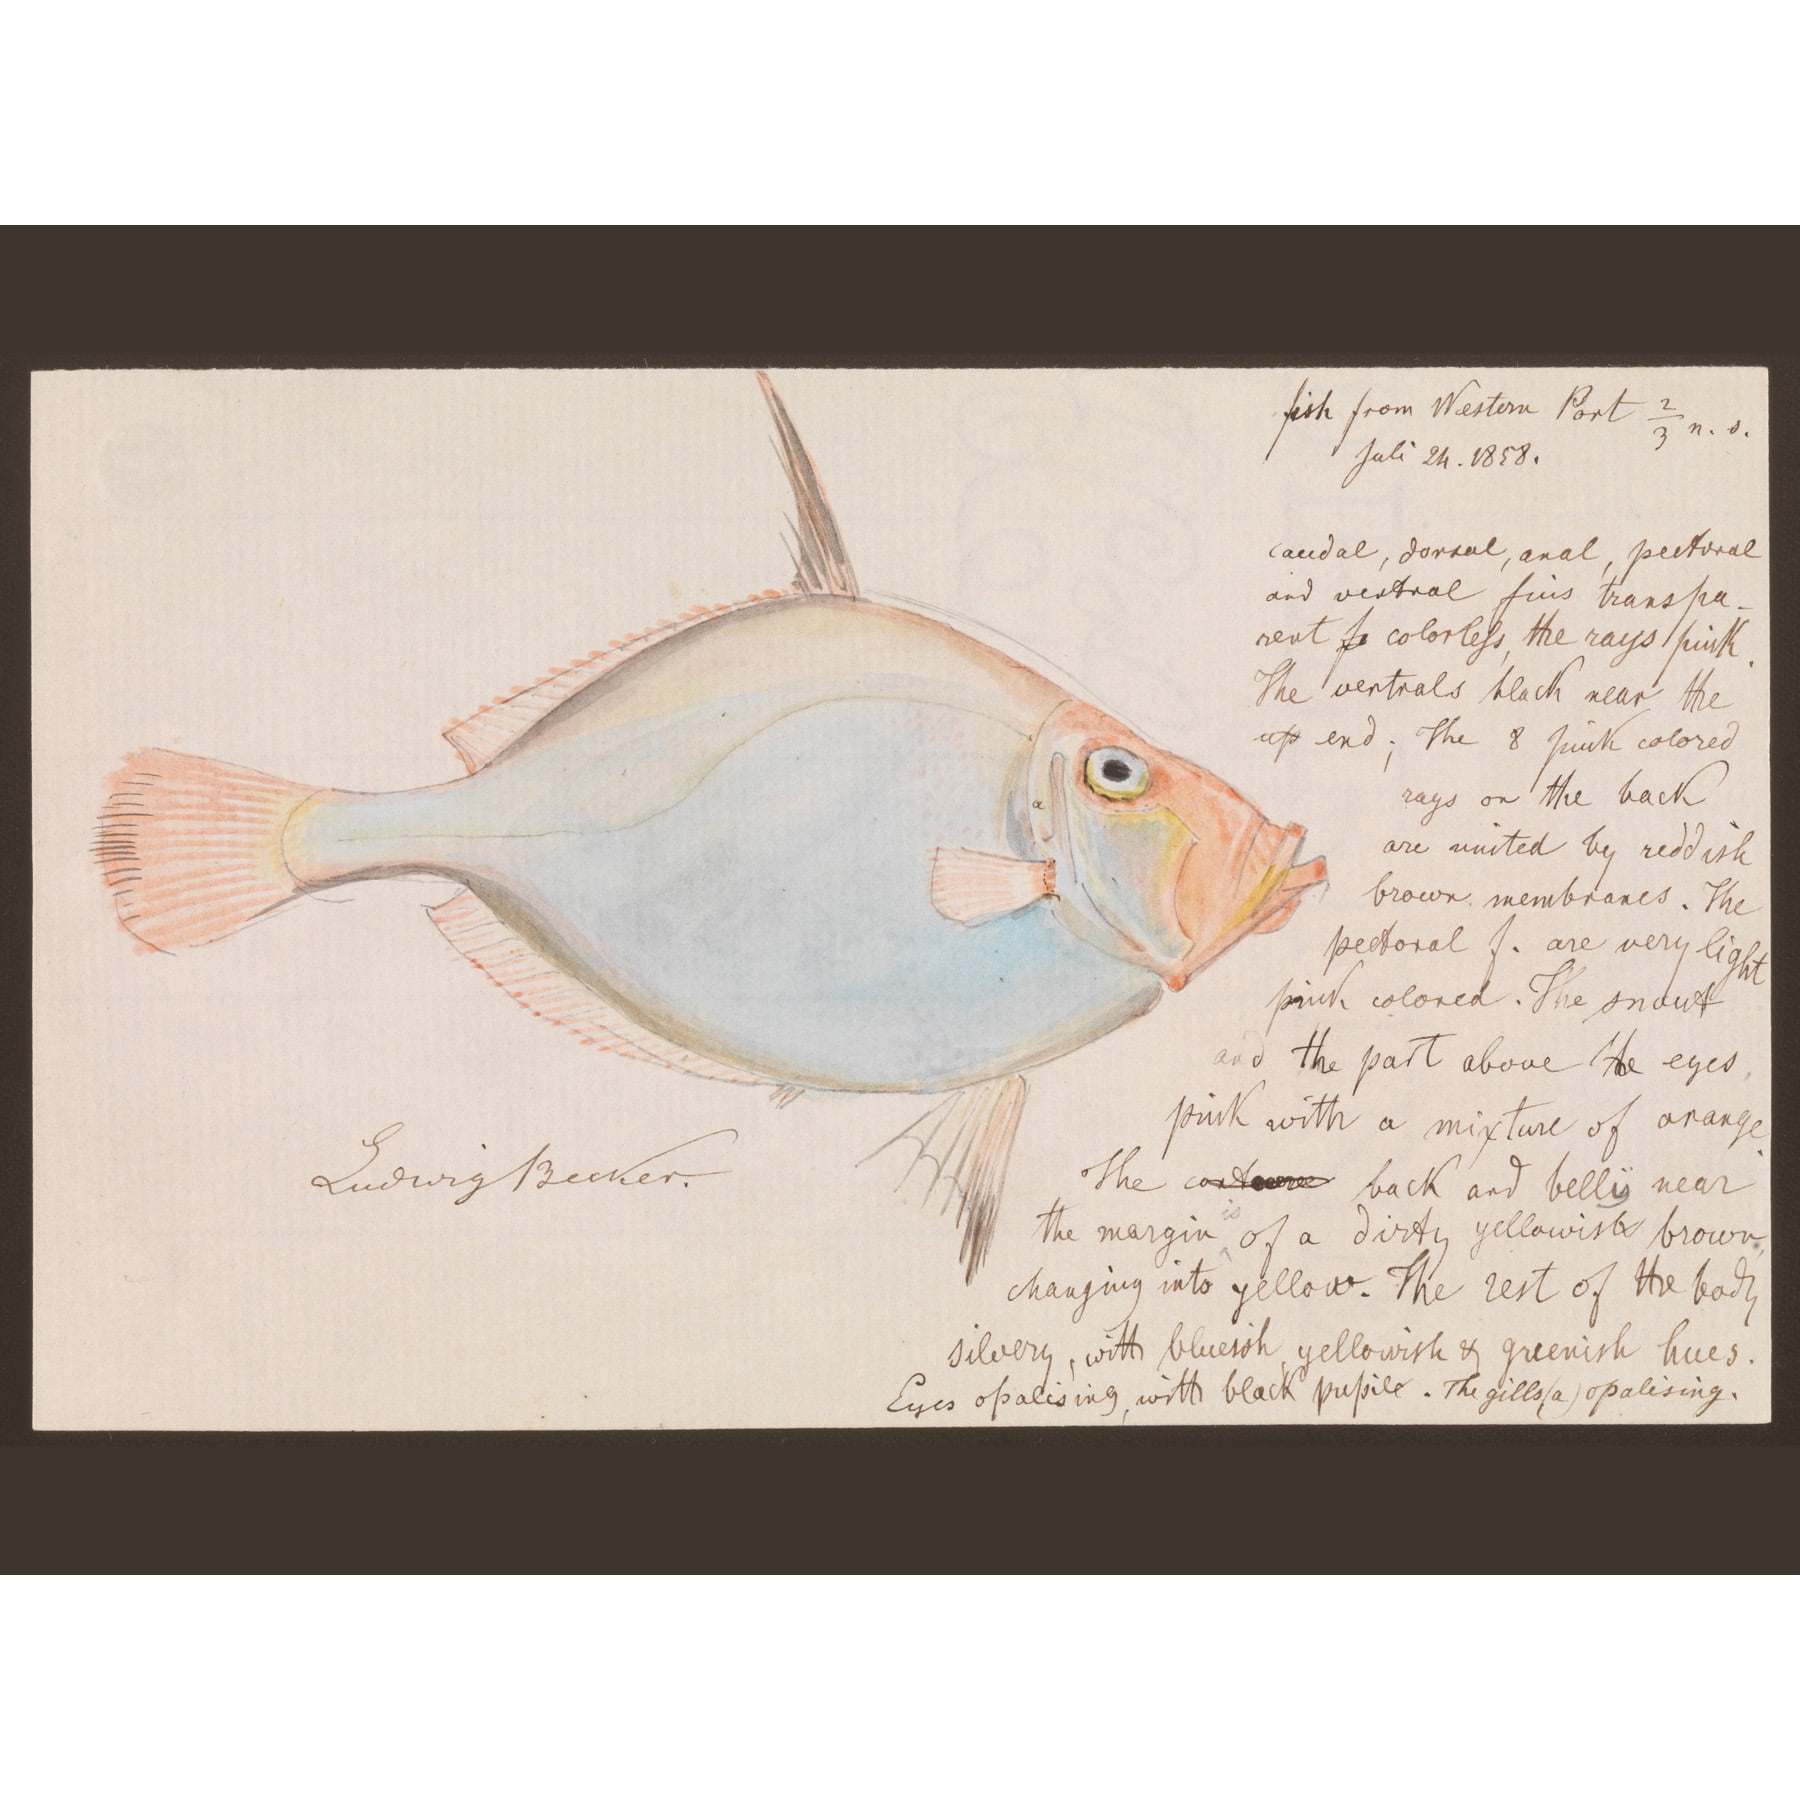 fish from Western Port 2/3 n. s.
Juli 24. 1858.
caudal, dorsal, anal, pectoral
and ventral fins transpa-
rent & colorless, the rays pink.
The ventrals black near the
up end; The 8 pink colored
rays on the back
are united by reddish
brown membranes. The
pectoral f. are very light
pink colored. The snout
and the part above the eyes,
pink with a mixture of orange
The back and belly near
the margin is of a dirty yellowish brown,
changing into yellow. The rest of the body
silvery, with blueish, yellowish & greenish hues.
Eyes opalising, with black pupile. The gills (a) opalising.
a
Ludwig Becker.